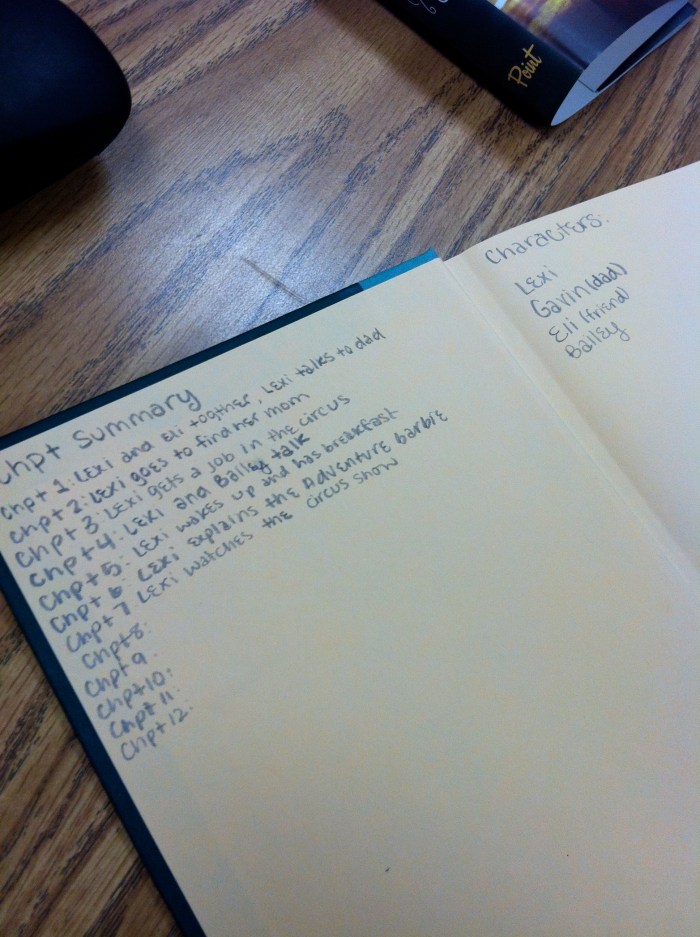 Point
Chpt Summary
Chpt 1: Lexi and Eli togther, Lexi talks to dad
Chpt 2: Lexi goes to find her mom
Chpt 3: Lexi gets a job in the circus
Chpt 4: Lexi and Bailey talk
Chpt 5: Lexi wakes up and has breakfast
Chpt 6: Lexi explains the Adventure barbie
Chpt 7 Lexi watches the circus show
Chpt 8:
Chpt 9:
Chpt 10:
Chpt 11:
Chpt 12:
Characters:
Lexi
Gavin (dad)
Eli (friend)
Bailey